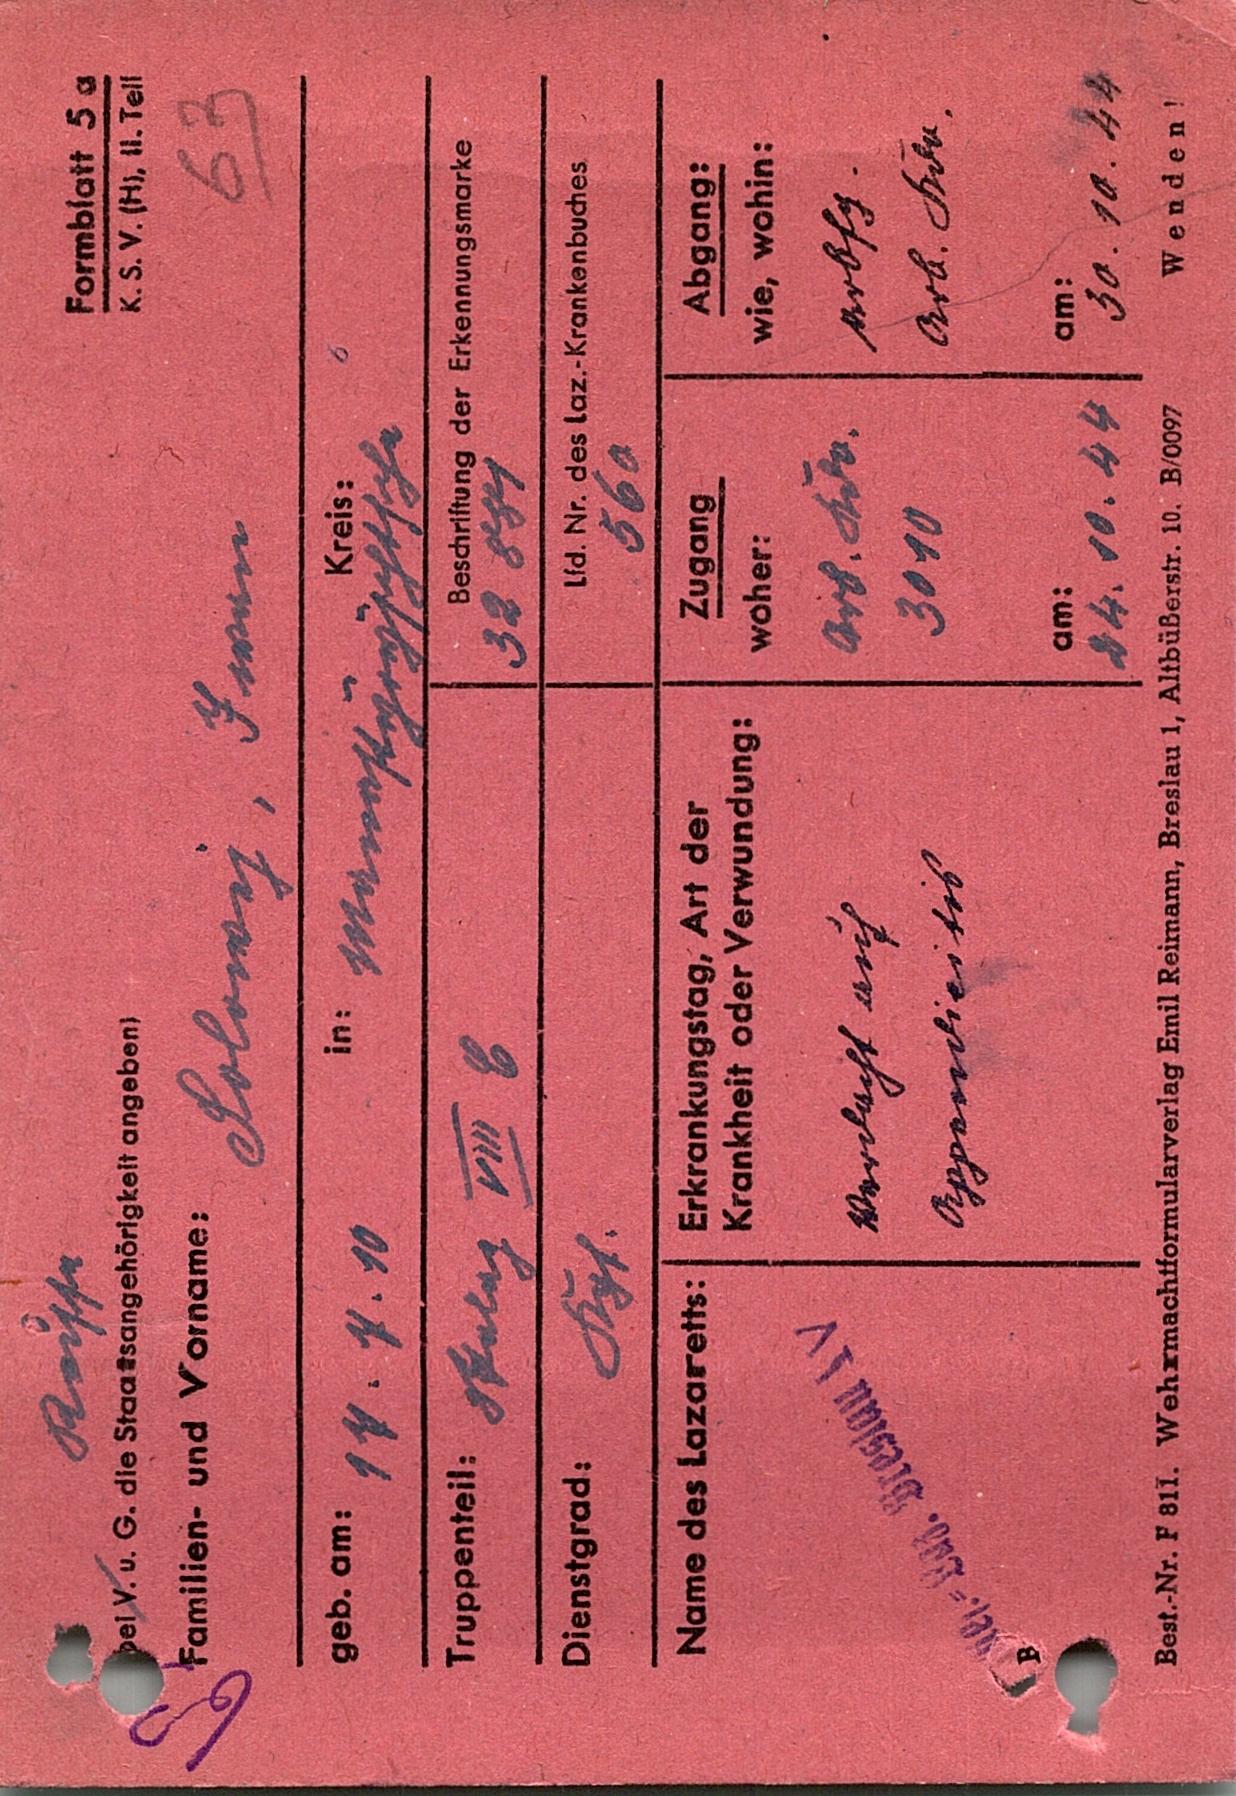 Formblatt 5 a
K. S. V. (H), II. Teil
Russe
bei V. u. G. die Staatsangehörigkeit angeben)
63
Familien- und Vorname:
Solowej, Iwan
geb. am: 17.7.10 in: Kreis:
Truppenteil: Stalag VIII C
Beschriftung der Erkennungsmarke
32 881
Dienstgrad: Kgf.
Lfd. Nr. des Laz.-Krankenbuches
560
Name des Lazaretts:
Res.-Laz. Breslau IV
B
Erkrankungstag, Art der
Krankheit oder Verwundung:
Verdacht auf
Appendicitis
Zugang
woher:
Arb. Kdo.
3010
am:
24.10.44
Abgang:
wie, wohin:
arbfg.
Arb. Kdo.
am:
30.10.44
Best.-Nr. F 811. Wehrmachtformularverlag Emil Reimann, Breslau 1, Altbüßerstr. 10. B/0097 Wenden!